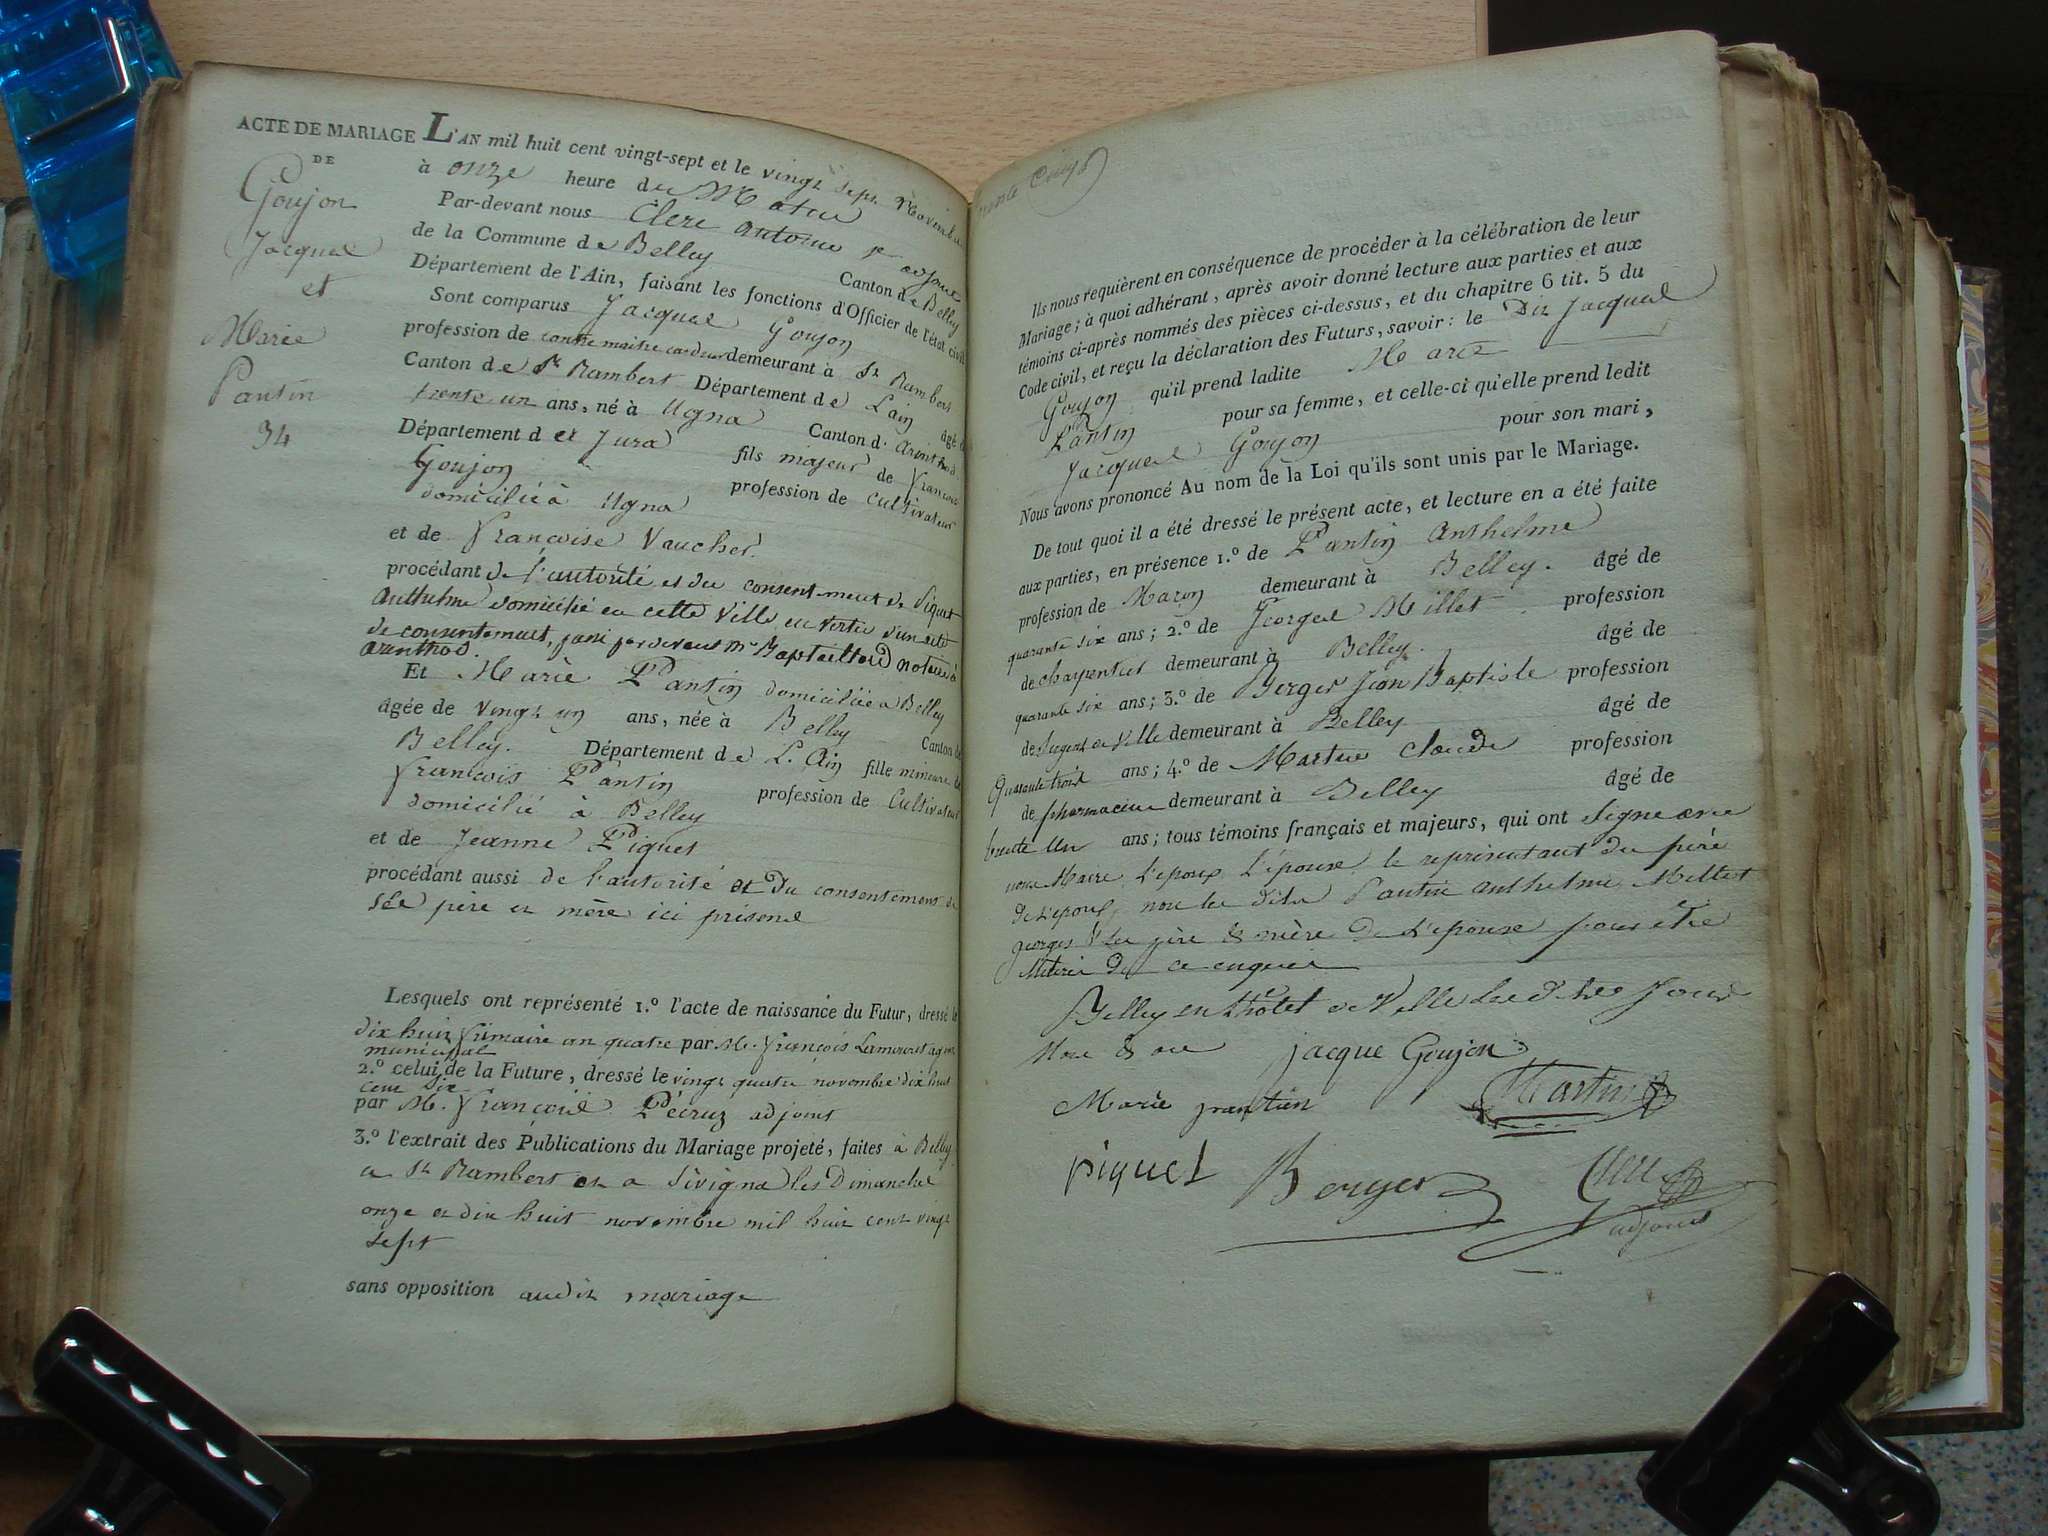 ACTE DE MARIAGE
DE
Goujon
Jacques
et
Marie
Pantin
34
L'AN mil huit cent vingt-sept et le vingt sept Novembre
à onze heure du Matin
Par-devant nous Clerc antoine adjoint
de la Commune de Belley Canton de Belley
Département de l'Ain, faisant les fonctions d'Officier de l'état civil
Sont comparus Jacques Goujon
profession de contre maitre cardeur demeurant à St Rambert
Canton de St Rambert Département de Lain âgé de
trente un ans, né à Ugna Canton d'arinthod
Département de Jura fils majeur de francois
Goujon profession de Cultivateur
domicilié à Ugna
et de françoise Vaucher
procédant de l'autorité et du consentement de Piquet
anthelme domicilié en cette Ville en vertu d'un acte
de consentement, passé pardevant Mr notaire à
arinthod.
Et Marie Pantin domiciliée a Belley
âgée de vingt un ans, née à Belley Canton de
Belley. Département de L'Ain fille mineure de
francois Pantin profession de Cultivateur
domicilié à Belley
et de Jeanne Piquet
procédant aussi de l'autorité et du consentement de
ses père et mère ici présens
Lesquels ont représenté 1.º l'acte de naissance du Futur, dressé le
dix huit frimaire an quatre par M. françois Lamouret agent
municipal
2.º celui de la Future, dressé le vingt quatre novembre dix huit
cent six
par M. françois Pécruz adjoint
3.º l'extrait des Publications du Mariage projeté, faites à Belley
a St Rambert et a Sivigna les Dimanches
onze et dix huit novembre mil huit cent vingt
sept
sans opposition audit mariage
Ils nous requièrent en conséquence de procéder à la célébration de leur
Mariage; à quoi adhérant, après avoir donné lecture aux parties et aux
témoins ci-après nommés des pièces ci-dessus, et du chapitre 6 tit. 5 du
Code civil, et reçu la déclaration des Futurs, savoir: le Dit Jacques
Goujon qu'il prend ladite Marie
Pantin pour sa femme, et celle-ci qu'elle prend ledit
Jacques Goujon pour son mari,
Nous avons prononcé Au nom de la Loi qu'ils sont unis par le Mariage.
De tout quoi il a été dressé le présent acte, et lecture en a été faite
aux parties, en présence 1.º de Pantin Anthelme
profession de Maçon demeurant à Belley. âgé de
quarante six ans; 2.º de Georges Millet profession
de charpentier demeurant à Belley. âgé de
quarante six ans; 3.º de Berger Jean Baptiste profession
de Sergent de Ville demeurant à Belley âgé de
Quarante trois ans; 4.º de Martin Claude profession
de pharmacien demeurant à Belley âgé de
trente Un ans; tous témoins français et majeurs, qui ont Signé avec
nous Maire L'epoux L'épouse le représentant du père
de L'epoux, non les dits Pantin anthelme Millet
georges & les père & mère de L'épouse pour être
de ce enquis
Belley en L'hotel de Ville Les dits Jour
Mois & an
jacque Goujon
Marie pantin
Martin
piquet
Berger
Clerc
adjoint